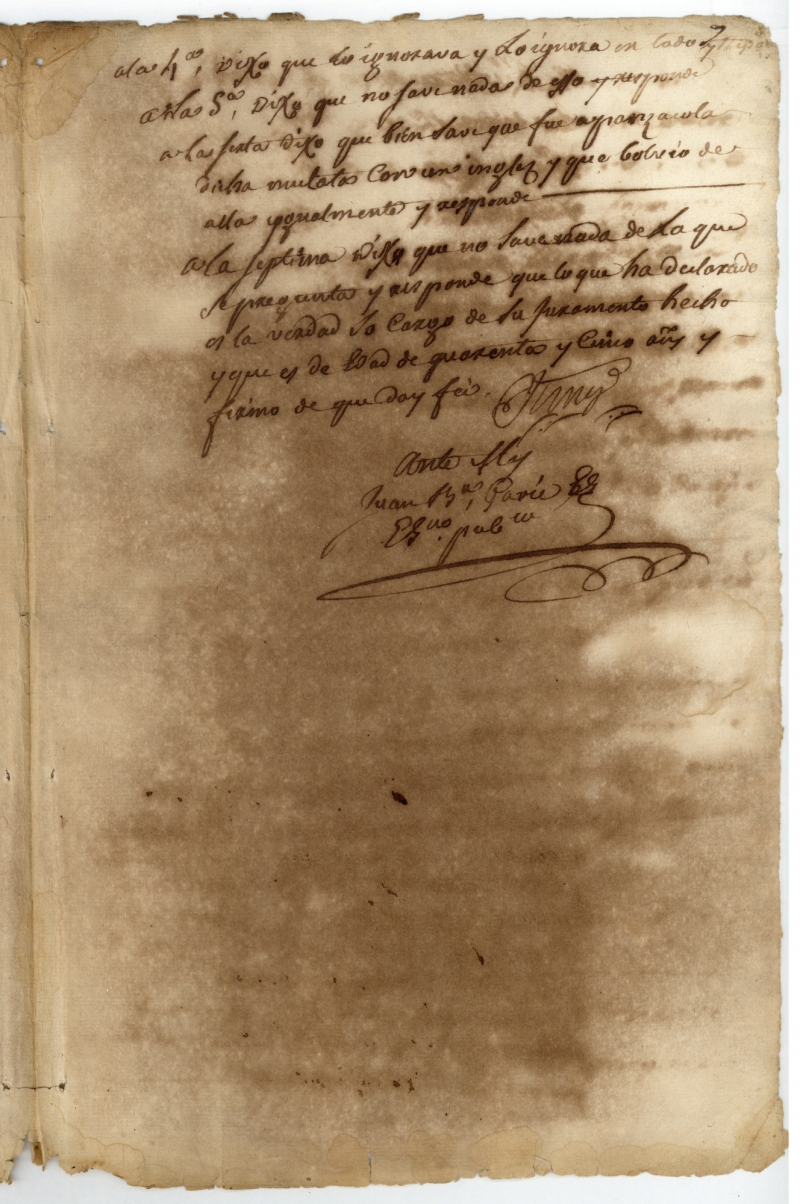 ala 4ª, Dixo que lo ignorava y lo ignora en todo
a la 5ª, Dixo que no save nada de esso y responde
a la sexta Dixo que bien save que fue a panzacola
dicha mulata con un ingles y que bolvio de
alla ygualmente y responde
a la septima Dixo que no save nada de la que
se pregunta y responde que lo que ha declarado
es la verdad so cargo de su juramento hecho
y que es de edad de quarenta y cinco añs y
firmo de que doy feé.
Ante My
Juan Bta, Garic
Esno. pubco